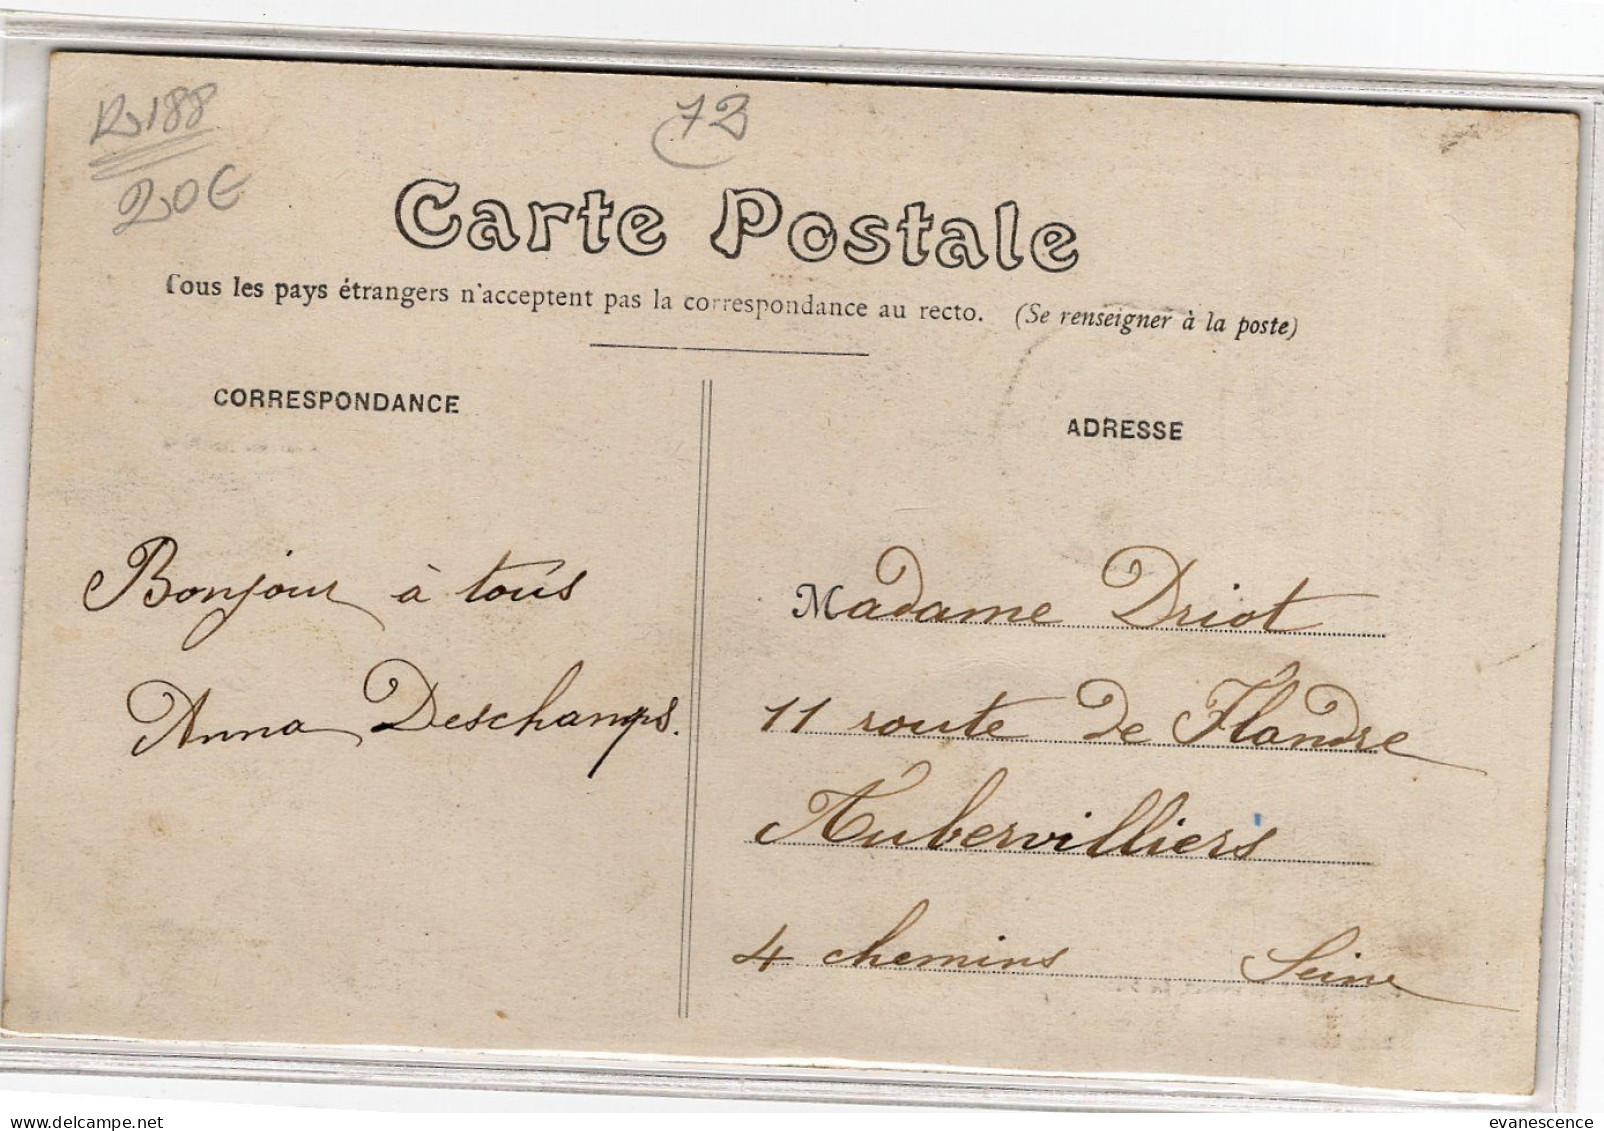 R188
20€
72
Carte Postale
Tous les pays étrangers n'acceptent pas la correspondance au recto. (Se renseigner à la poste)
CORRESPONDANCE
ADRESSE
Bonjour à tous
Anna Deschamps.
Madame Driot
11 route de Flandre
Aubervilliers
4 chemins Seine
evanescence